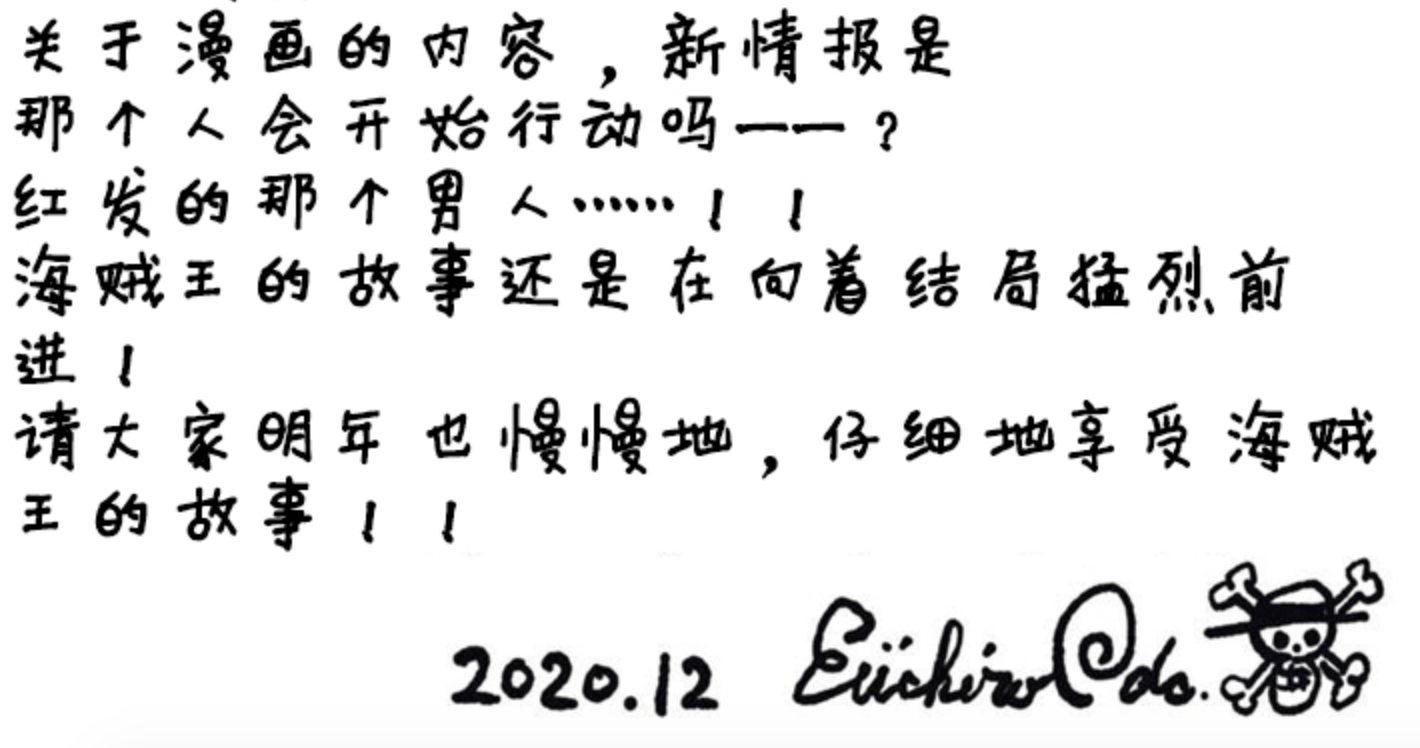 关于漫画的内容，新情报是
那个人会开始行动吗——？
红发的那个男人……！！
海贼王的故事还是在向着结局猛烈前
进！
请大家明年也慢慢地，仔细地享受海贼
王的故事！！
2020.12 Eiichiro Oda.